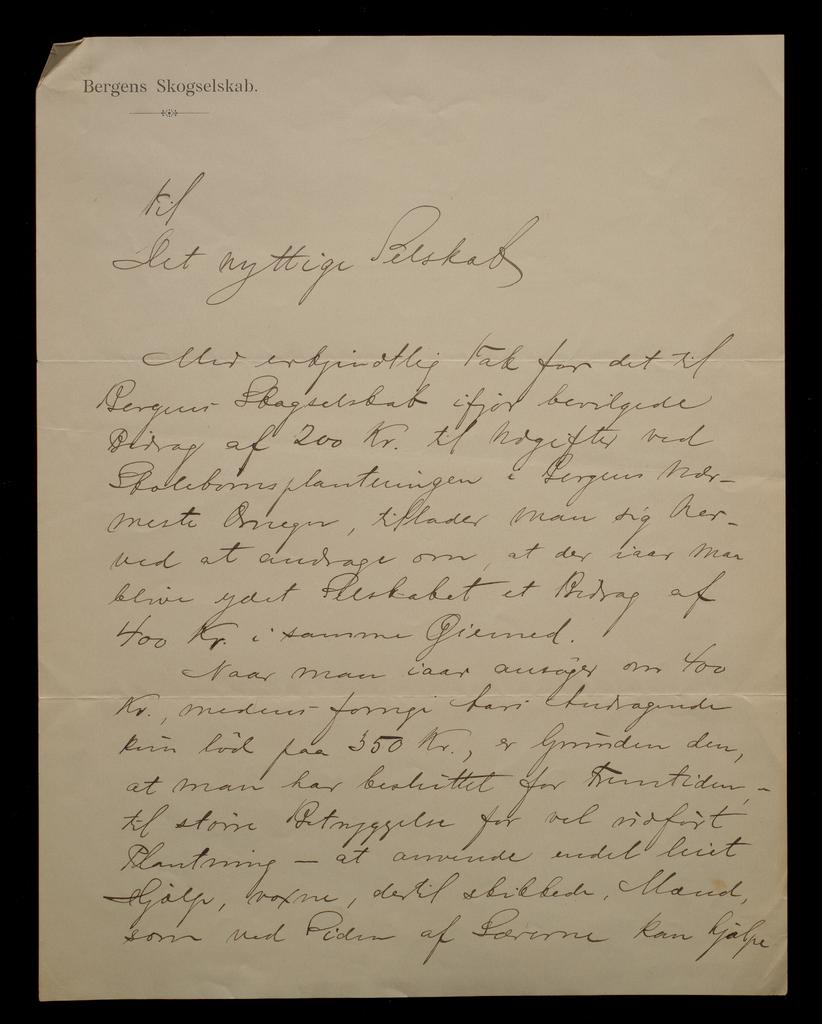 Bergens Skogselskab.
Til
Det nyttige Selskab
Med erkjendtlig Tak for det til
Bergens Skogselskab ifjor bevilgede
Bidrag af 200 Kr. til Udgifter ved
Skolebørnsplantningen i Bergens Nær-
meste Omegn, tillader man sig her-
ved at andrage om, at der iaar maa
blive ydet Selskabet et Bidrag af
400 Kr. i samme Øiemed.
Naar man iaar ansøger om 400
Kr., medens forrige Aars Andragende
kun lød paa 350 Kr., er Grunden den,
at man har besluttet for Fremtiden, -
til større Betryggelse for vel udført
Plantning – at anvende endel leiet
Hjælp, voxne, dertil skikkede, Mænd,
som ved Siden af Lærerne kan hjælpe